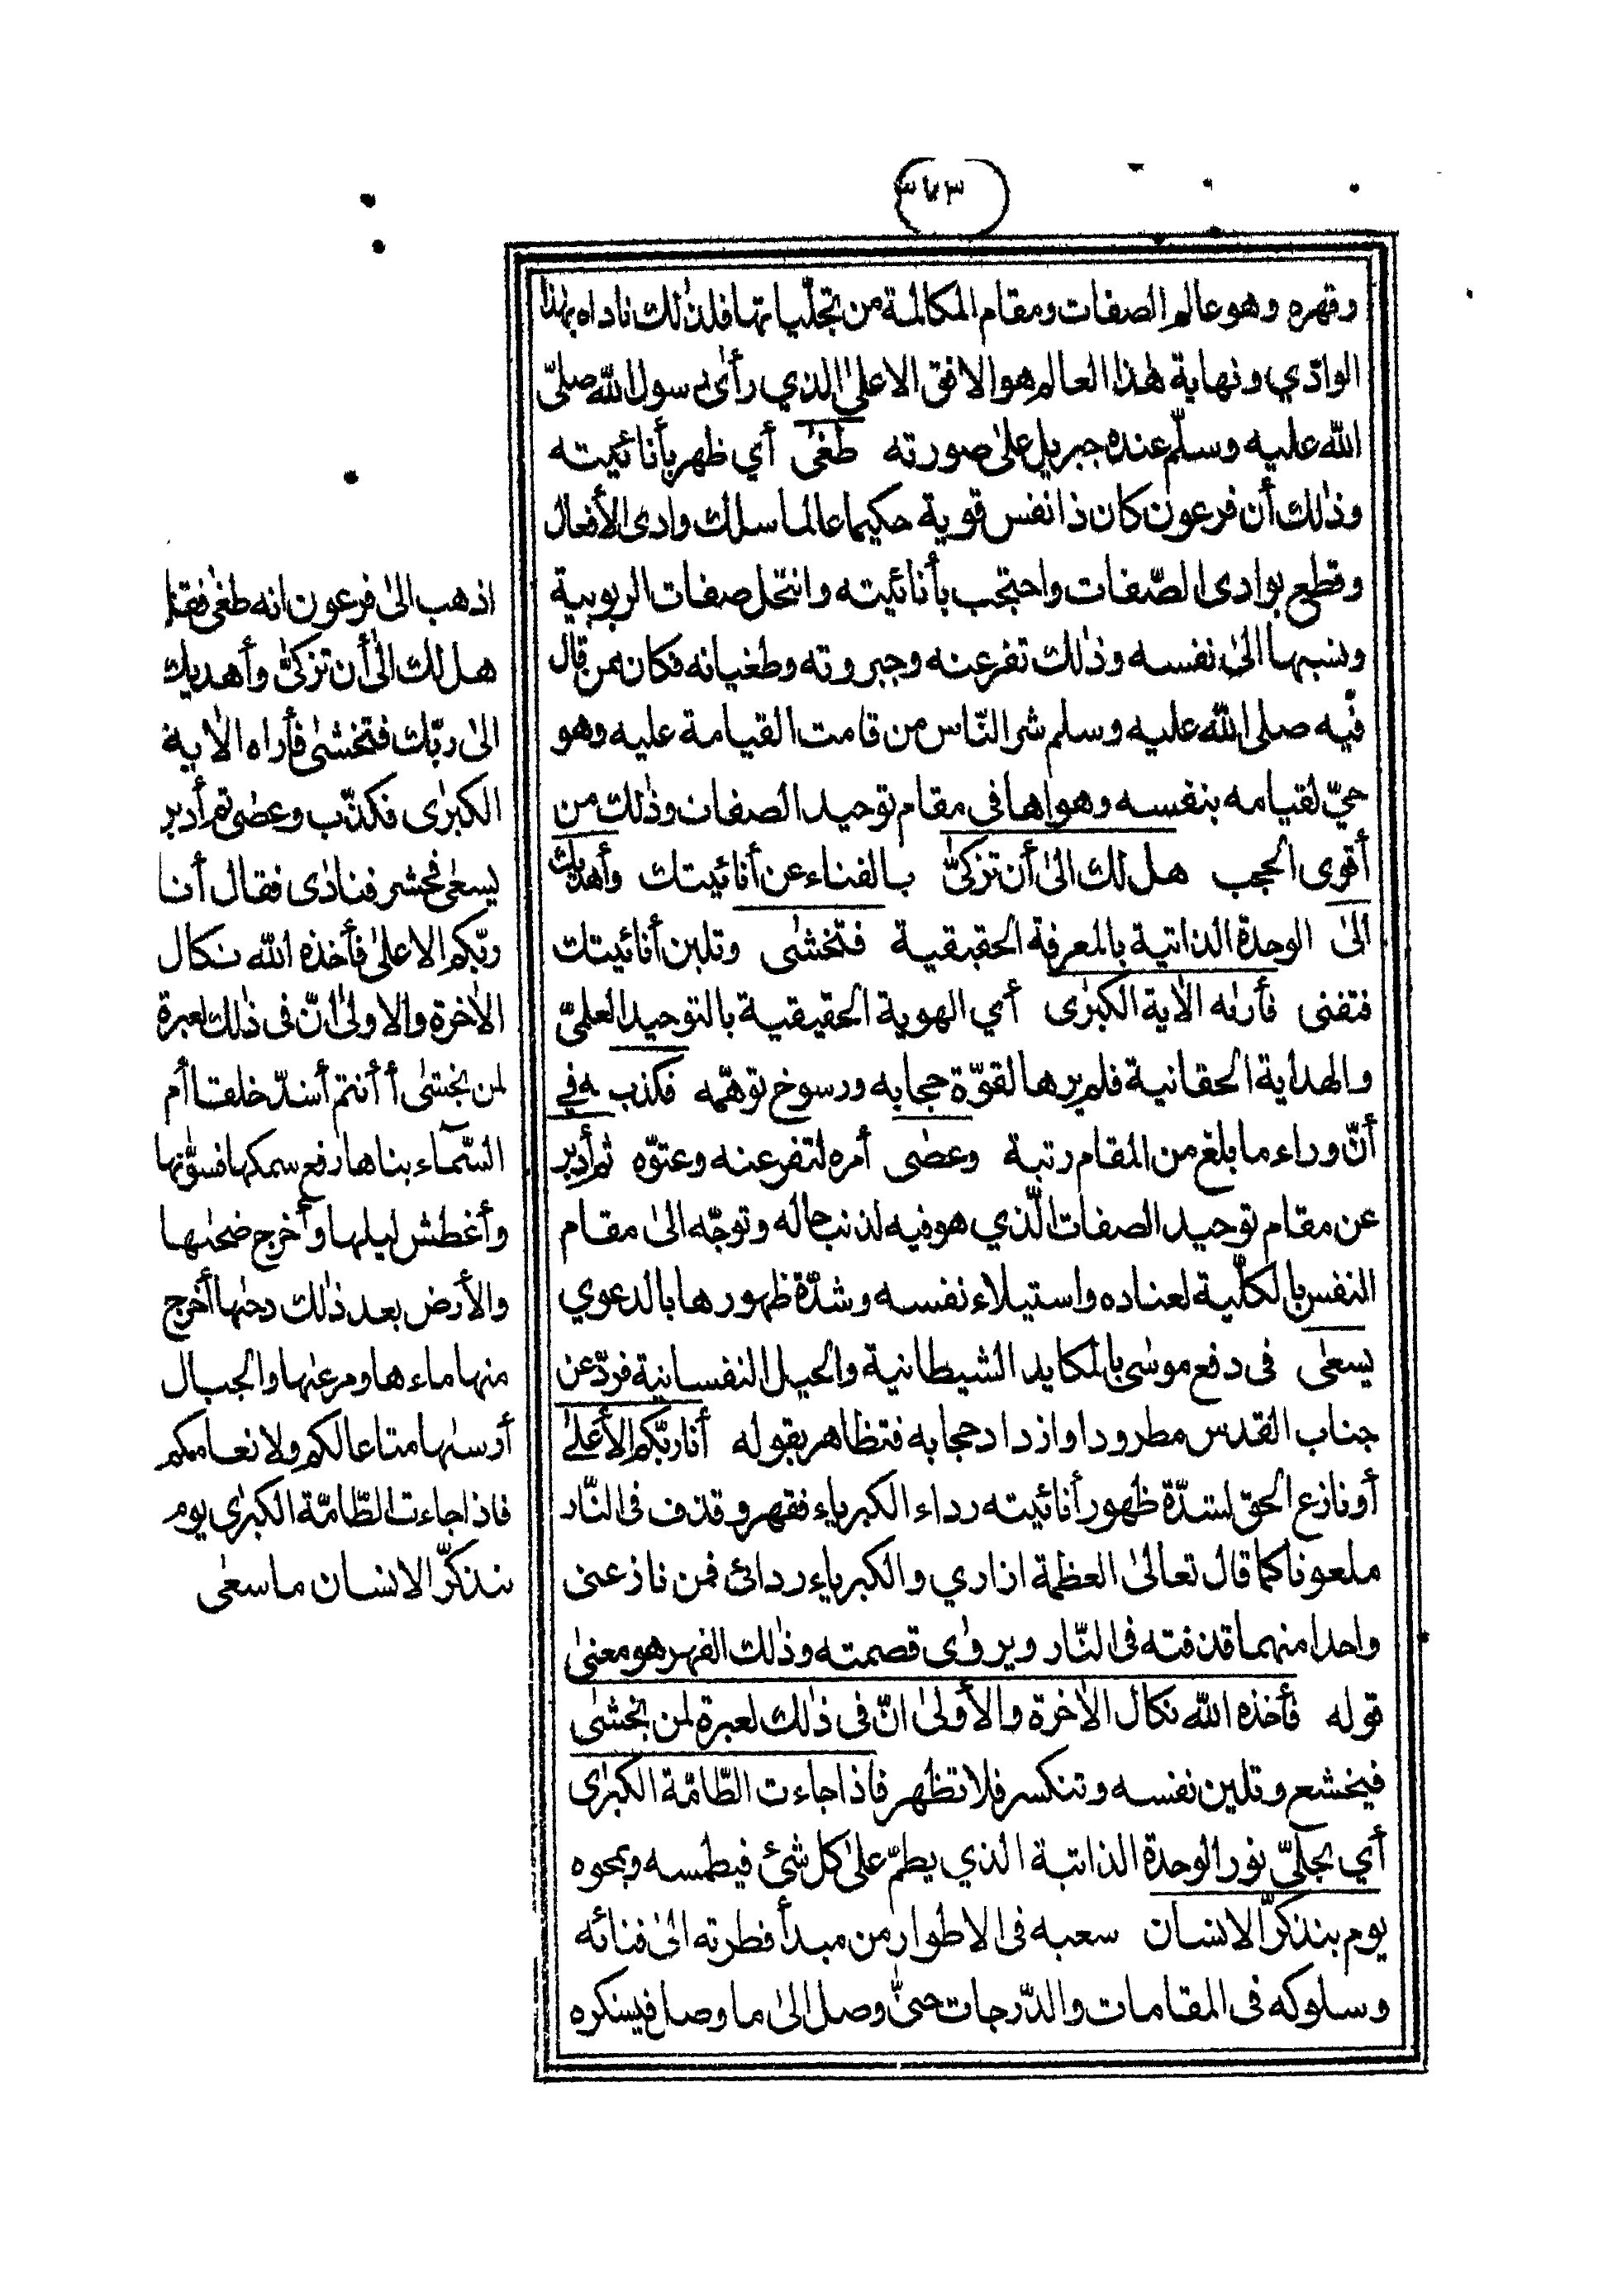 ٣٧٣
وقهره وهو عالم الصفات ومقام المكالمة من تجلّياتها فلذٰلك ناداه بهٰذا
الوادّي ونهاية هٰذا العالم هو الافق الاعلىٰ الذي رأىٰ رسول اللّٰه صلّى
اللّٰه عليه وسلّم عنده جبريل علىٰ صورته طغىٰ أي ظهر بأنائيته
وذٰلك أن فرعون كان ذا نفس قوية حكيما عالما سلك وادى الأفعال
وقطع بوادى الصّفات واحتجب بأنائيته وانتحل صفات الربوبية
ونسبها الىٰ نفسه وذٰلك تفرعنه وجبروته وطغيانه فكان ممن قال
فيه صلى اللّٰه عليه وسلم شر النّاس من قامت القيامة عليه وهو
حيّ لقيامه بنفسه وهواها فى مقام توحيد الصفات وذٰلك من
أقوى الحجب هل لك الىٰ أن تزكىّٰ بالفناء عن أنائيتك وأهديك
الىٰ الوحدة الذاتية بالمعرفة الحقيقية فتخشىٰ وتلين أنائيتك
فتفنى فأرىٰه الاٰية الكبرٰى أي الهوية الحقيقية بالتوحيد العلميّ
والهداية الحقانية فلم يرها لقوّة حجابه ورسوخ توهّمه فكذب ـه في
أنّ وراء ما بلغ من المقام رتبة وعصٰى أمره لتفرعنه وعتوّه ثم أدبر
عن مقام توحيد الصفات الّذي هو فيه لذنب حاله وتوجّه الىٰ مقام
النفس بالكلّية لعناده واستيلاء نفسه وشدّة ظهورها بالدعوي
يسعىٰ فى دفع موسٰى بالمكايد الشيطانية والحيل النفسانية فردّ عن
جناب القدس مطرودا وازداد حجابه فتظاهر بقوله أنا ربّكم الأعلىٰ
أو نازع الحق لشدّة ظهور أنائيته رداء الكبرياء فقهر وقذف فى النّار
ملعونا كما قال تعالىٰ العظمة ازاري والكبرياء ردائى فمن نازعنى
واحدا منهما قذفته فى النّار ويروٰى قصمته وذٰلك القهر هو معنىٰ
قوله فأخذه اللّٰه نكال الاٰخرة والأولىٰ انّ فى ذٰلك لعبرة لمن يخشىٰ
فيخشع وتلين نفسه وتنكسر فلا تظهر فاذا جاءت الطّامّة الكبرٰى
أي تجلىّ نور الوحدة الذاتية الذي يطمّ علىٰ كل شئ فيطمسه ويمحوه
يوم يتذكرّ الانسان سعيه فى الاطوار من مبدأ فطرته الىٰ فنائه
وسلوكه فى المقامات والدّرجات حتىّٰ وصل الىٰ ما وصل فيشكره
اذهب الىٰ فرعون انه طغىٰ فقل
هل لك الىٰ أن تزكىّٰ وأهديك
الىٰ ربّك فتخشىٰ فأراه الاٰية
الكبرٰى فكذّب وعصٰى ثم أدبر
يسعىٰ فحشر فنادٰى فقال أنا
ربّكم الاعلىٰ فأخذه اللّٰه نكال
الاٰخرة والاولىٰ انّ فى ذٰلك لعبرة
لمن يخشىٰ أأنتم أشدّ خلقا أم
السّمآء بناها رفع سمكها فسوّٰىها
وأغطش ليلها وأخرج ضحٰىها
والأرض بعد ذٰلك دحٰىها أخرج
منها ماءها ومرعٰىها والجبال
أرسٰىها متاعا لكم ولانعامكم
فاذا جاءت الطّامّة الكبرٰى يوم
يتذكرّ الانسان ما سعىٰ